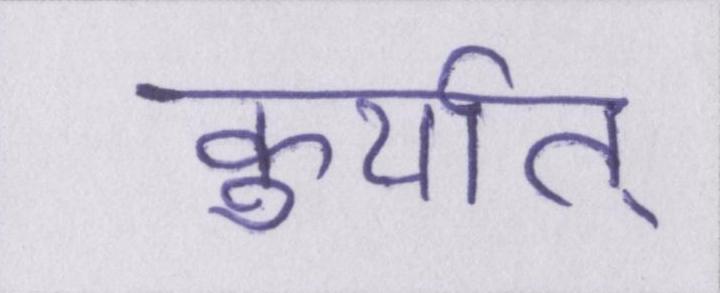 कुर्यात्